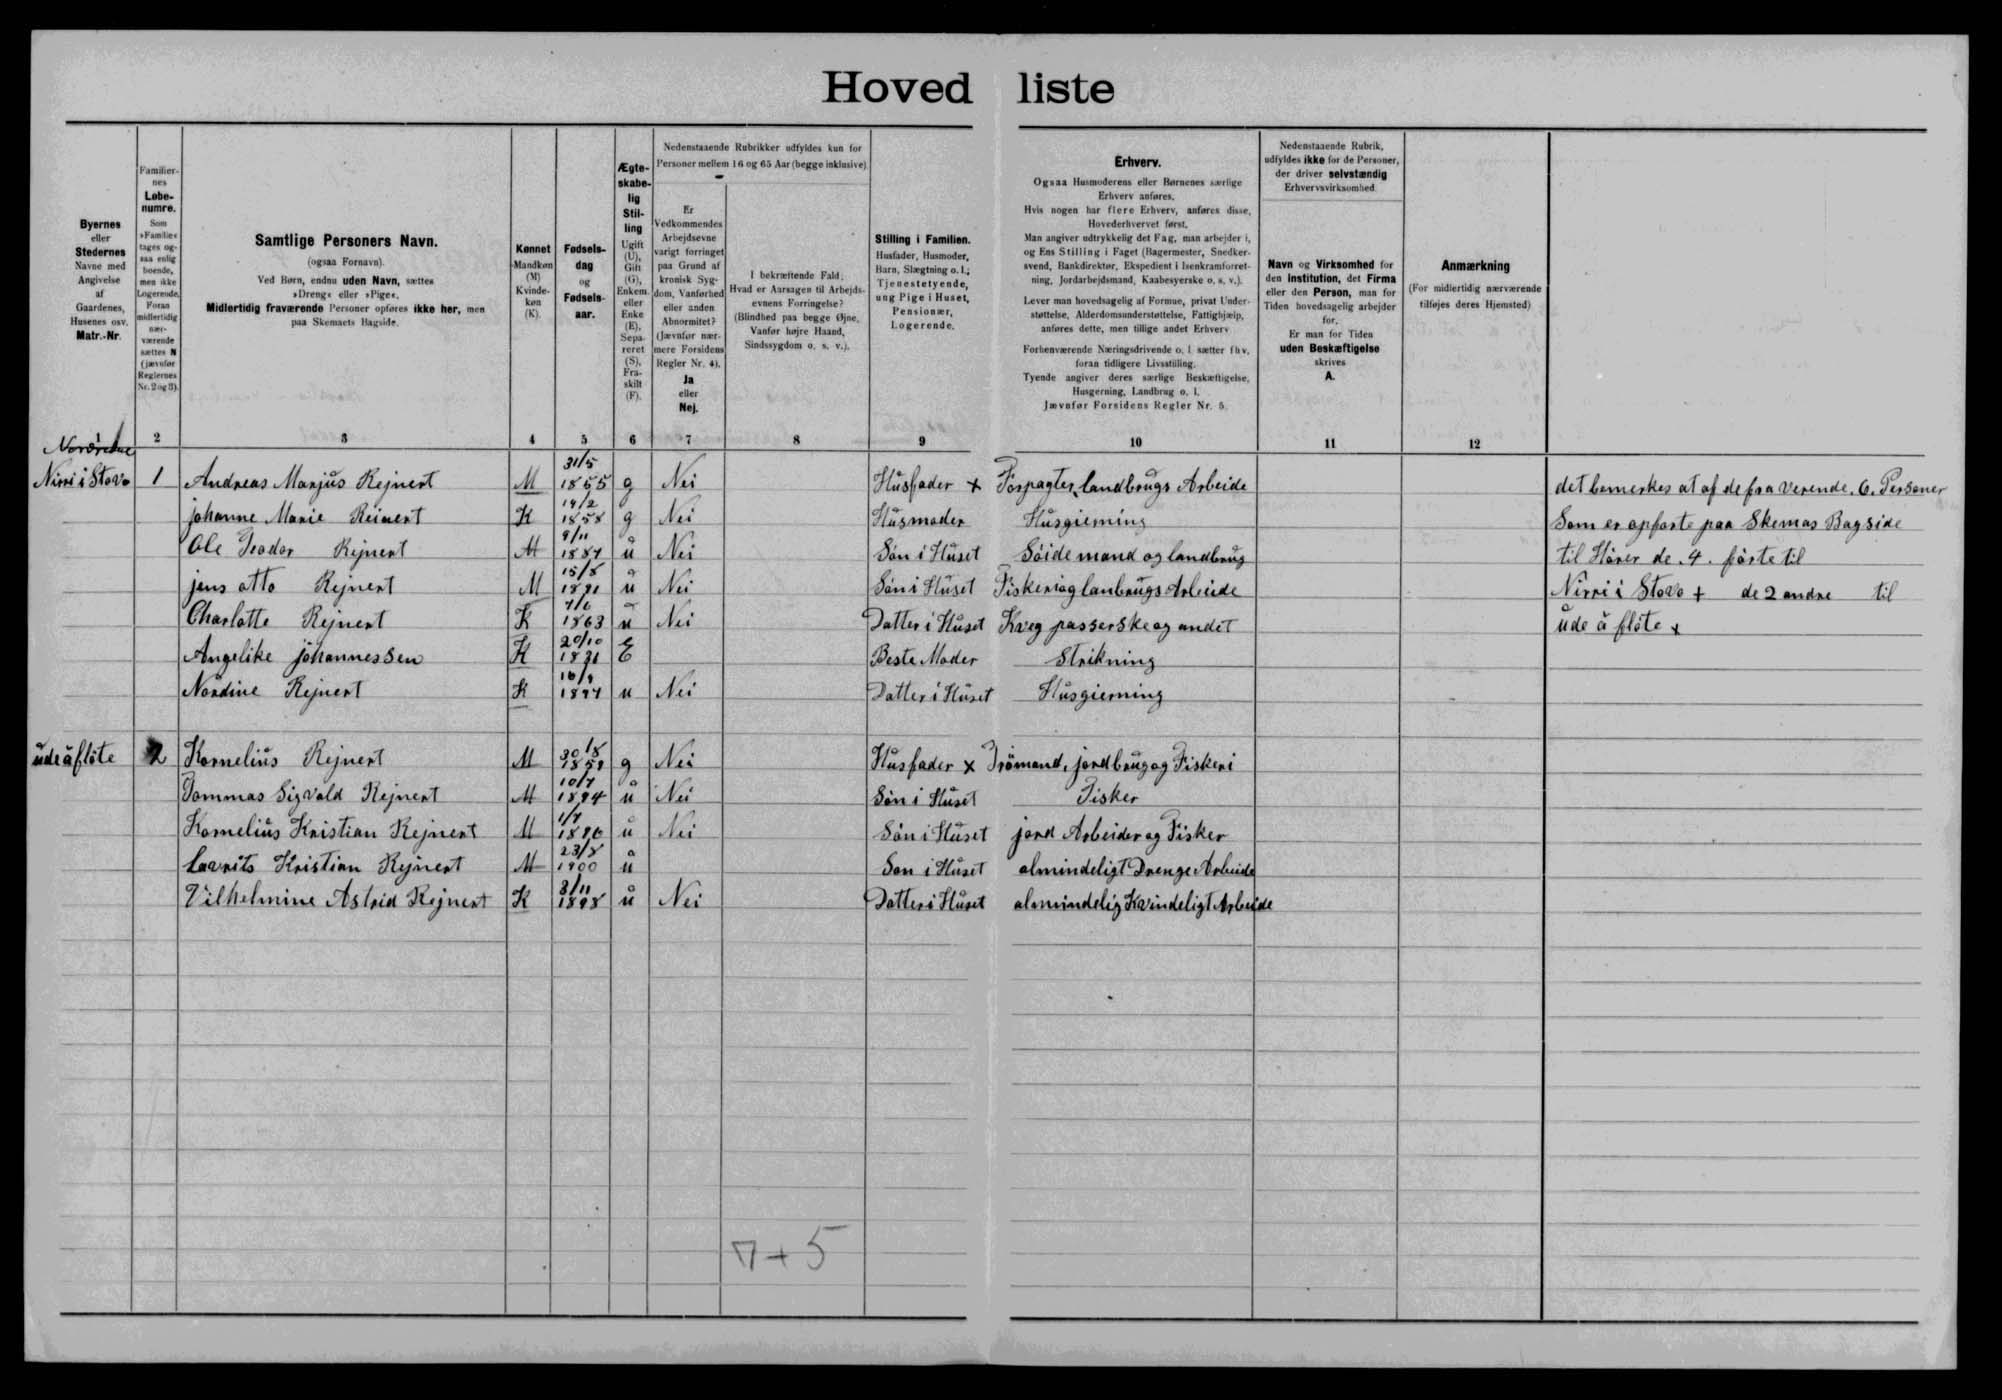 Hovedliste
Byernes
eller
Stedernes
Navne med
Angivelse
af
Gaardenes,
Husenes osv.
Matr.-Nr.
1
Familier-
nes
Løbe-
numre.
Som
»Familie«
tages og-
saa enlig
boende,
men ikke
Logerende.
Foran
midlertidig
nær-
værende
sættes N
(jævnfør
Reglernes
Nr. 2 og 3).
2
Samtlige Personers Navn.
(ogsaa Fornavn).
Ved Børn, endnu uden Navn, sættes
»Dreng« eller »Pige«.
Midlertidig fraværende Personer opføres ikke her, men
paa Skemaets Bagside.
3
Kønnet
Mandkøn
(M)
Kvinde-
køn
(K).
4
Fødsels-
dag
og
Fødsels-
aar.
5
Ægte-
skabe-
lig
Stil-
ling
Ugift
(U),
Gift
(G),
Enkem.
eller
Enke
(E),
Sepa-
reret
(S),
Fra-
skilt
(F).
6
Nedenstaaende Rubrikker udfyldes kun for
Personer mellem 16 og 65 Aar (begge inklusive)
Er
Vedkommendes
Arbejdsevne
varigt forringet
paa Grund af
kronisk Syg-
dom, Vanførhed
eller anden
Abnormitet?
(Jævnfør nær-
mere Forsidens
Regler Nr. 4).
Ja
eller
Nej.
7
I bekræftende Fald:
Hvad er Aarsagen til Arbejds-
evnens Forringelse?
(Blindhed paa begge Øjne,
Vanfør højre Haand,
Sindssygdom o. s. v.).
8
Stilling i Familien.
Husfader, Husmoder,
Barn, Slægtning o. l.;
Tjenestetyende,
ung Pige i Huset,
Pensionær,
Logerende.
9
Erhverv.
Ogsaa Husmoderens eller Børnenes særlige
Erhverv anføres.
Hvis nogen har flere Erhverv, anføres disse,
Hovederhvervet først.
Man angiver udtrykkelig det Fag, man arbejder i,
og Ens Stilling i Faget (Bagermester, Snedker-
svend, Bankdirektør, Ekspedient i Isenkramforret-
ning, Jordarbejdsmand, Kaabesyerske o. s. v.).
Lever man hovedsagelig af Formue, privat Under-
støttelse, Alderdomsunderstøttelse, Fattighjælp,
anføres dette, men tillige andet Erhverv
Forhenværende Næringsdrivende o. l sætter fhv.
foran tidligere Livsstilling.
Tyende angiver deres særlige Beskæftigelse,
Husgerning, Landbrug o. l.
Jævnfør Forsidens Regler Nr. 5.
10
Nedenstaaende Rubrik,
udfyldes ikke for de Personer,
der driver selvstændig
Erhvervsvirksomhed.
Navn og Virksomhed for
den Institution, det Firma
eller den Person, man for
Tiden hovedsagelig arbejder
for.
Er man for Tiden
uden Beskæftigelse
skrives
A.
11
Anmærkning
(For midlertidig nærværende
tilføjes deres Hjemsted)
12
Nirri i Stovo 1 Andreas Marjus Rejnert M 31/5 1855 g Nei Husfader + Forpagter, landbrugs Arbeide det bemerkes at af de fra verende. 6. Personer
johanne Marie Reinert K 19/2 1858 g Nei Husmoder Husgierning Som er opførte paa Skemas Bagside
Ole Teodor Rejnert M 9/11 1887 u Nei Søn i Huset Söidemand og landbrug til Hører de .4. förte til
jens otto Rejnert M 15/8 1891 u Nei Søn i Huset Fiskeri og lanbrugs Arbeide Nirri i Stovo + de 2 andre til
Charlotte Rejnert K 1863 u Nei Datter i Huset Kveg passerske og andet ude å flöte x
Angelike johannessen K 20/10 E Beste Moder Strikning
Nördine Rejnert K u Nei Datter i Huset Husgierning
ude å flöte 2 Kornelius Rejnert M g Nei Husfader x jordbrug og Fiskeri
Tommas Sigvald Rejnert M 10/7 1894 u Nei Søn i Huset Fisker
Kornelius Kristian Rejnert M 1/7 1896 u Nei Søn i Huset jord Arbeider og Fisker
Lavrits Kristian Rejnert M 23/8 1900 u Søn i Huset almindeligt Drenge Arbeide
Vilhelmine Astrid Rejnert K 3/11 1898 u Nei Datter i Huset almindelig Kvindeligt Arbeide
7+5